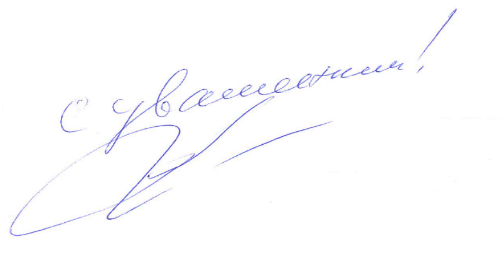 с уважением!